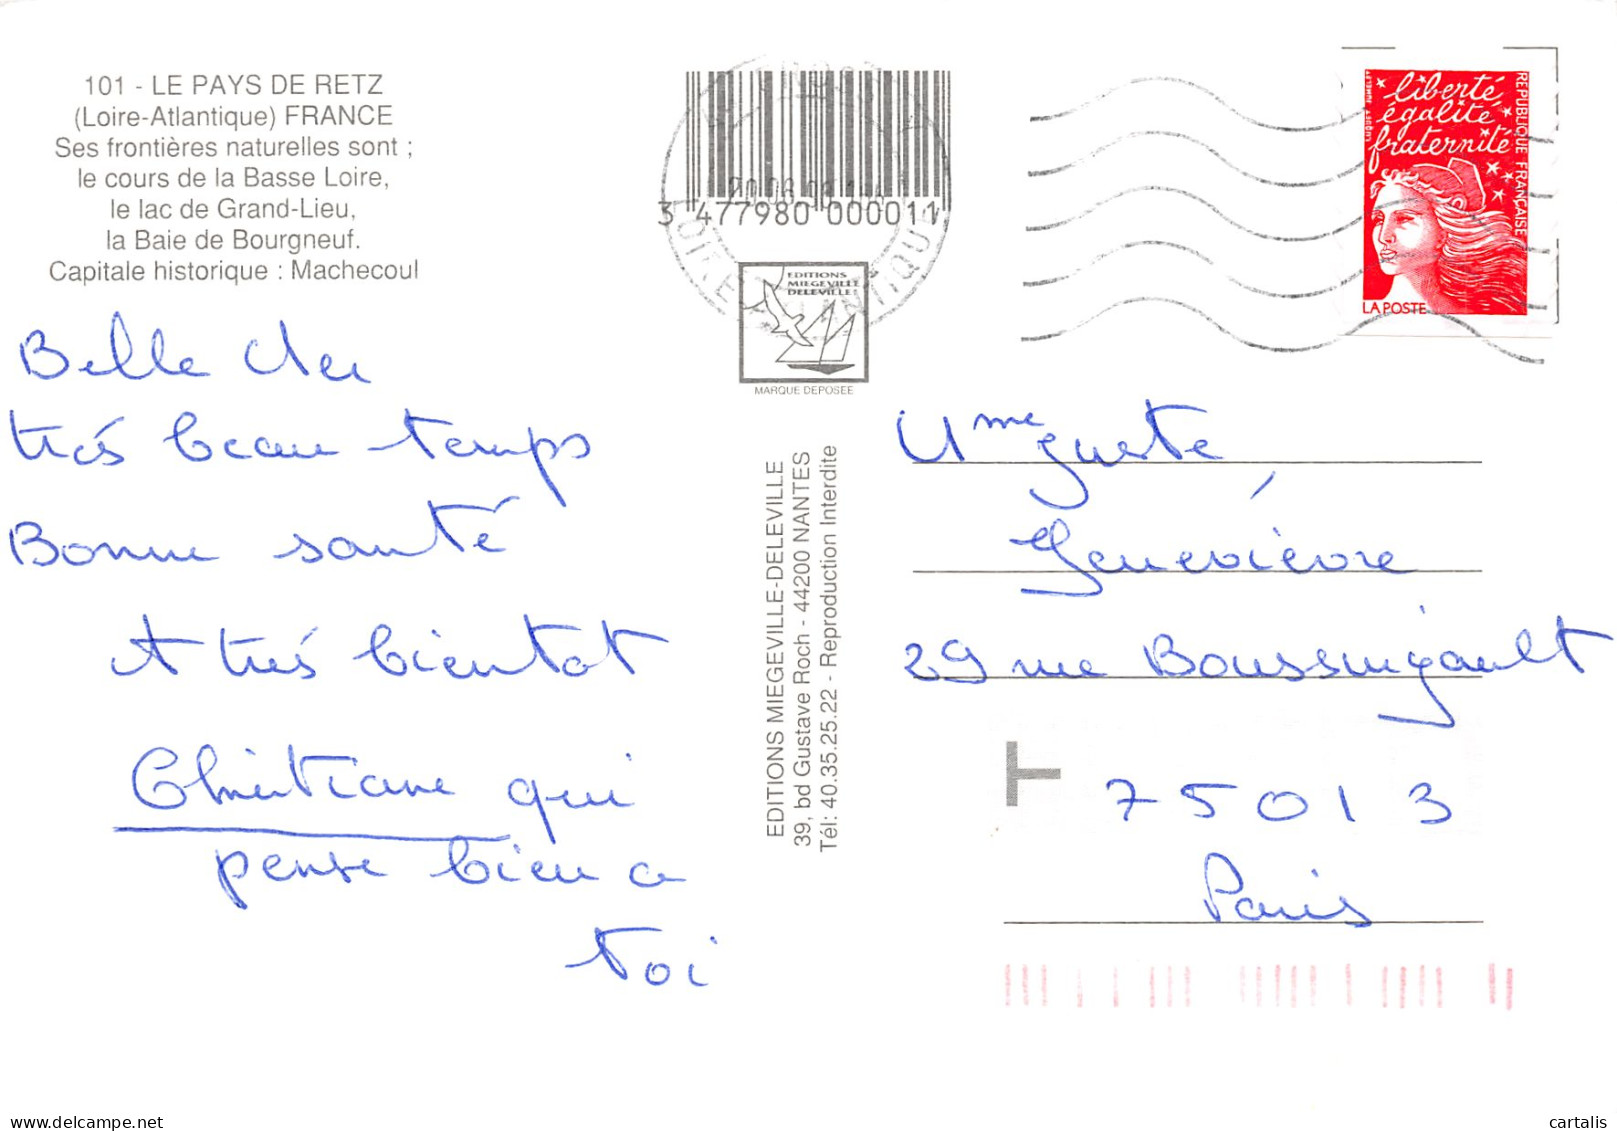 101 - LE PAYS DE RETZ
(Loire-Atlantique) FRANCE
Ses frontières naturelles sont ;
le cours de la Basse Loire,
le lac de Grand-Lieu,
la Baie de Bourgneuf.
Capitale historique : Machecoul
Belle Mer
très beau temps
Bonne santé
A très bientot
Christiane qui
pense bien a
toi
3 477980 000011
LOIRE ATLANTIQUE
EDITIONS
MIEGEVILLE
DELEVILLE
MARQUE DEPOSEE
EDITIONS MIEGEVILLE-DELEVILLE
39, bd Gustave Roch - 44200 NANTES
Tél: 40.35.25.22 - Reproduction Interdite
liberté
égalité
fraternité
REPUBLIQUE FRANÇAISE
LA POSTE
Mme
Geneviève
29 rue Boussingault
T
75013
Paris
delcampe.net
cartalis